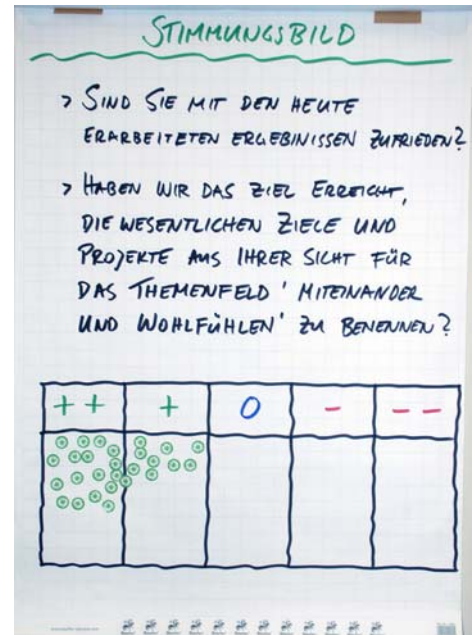 STIMMUNGSBILD
> SIND SIE MIT DEN HEUTE
ERARBEITETEN ERGEBINISSEN ZUFRIEDEN?
> HABEN WIR DAS ZIEL ERREICHT,
DIE WESENTLICHEN ZIELE UND
PROJEKTE AUS IHRER SICHT FÜR
DAS THEMENFELD 'MITEINANDER
UND WOHLFÜHLEN' ZU BENENNEN?
++ + 0 - --